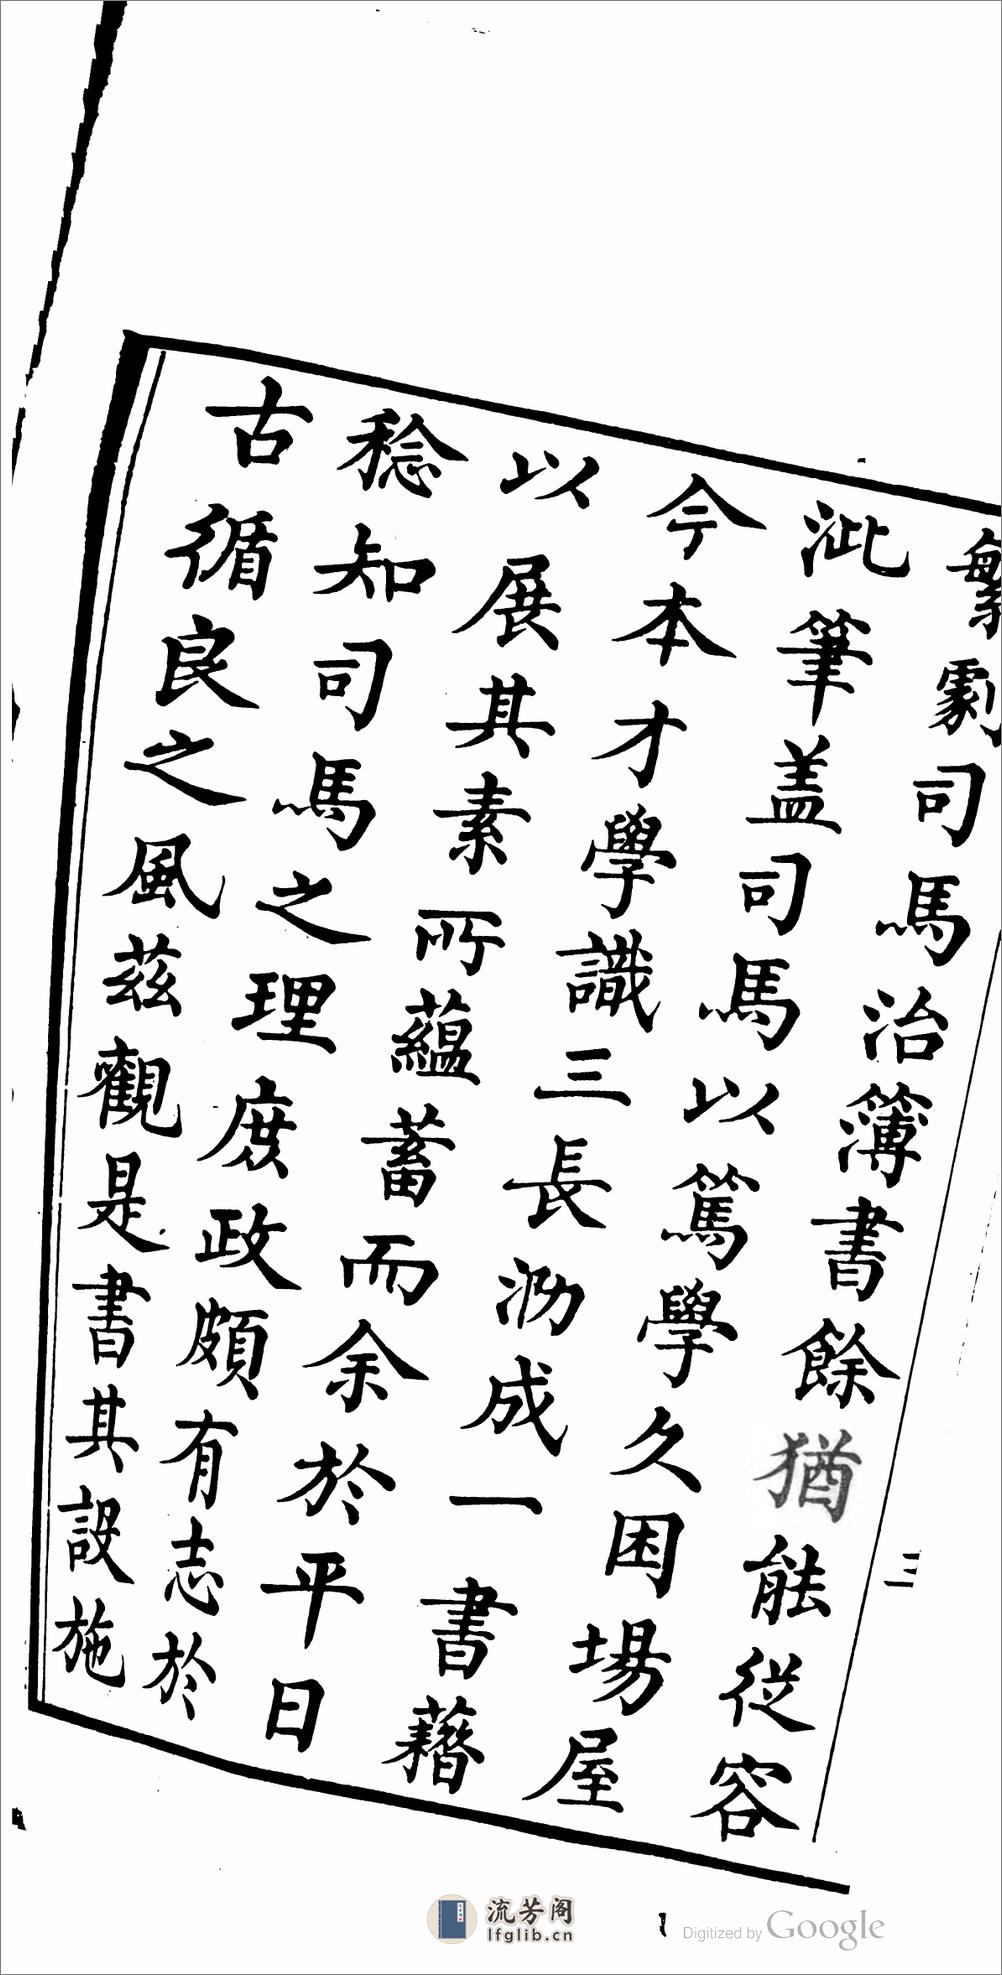 繁劇司馬治簿書餘猶能從容
泚筆盖司馬以篤學久困場屋
今本才學識三長沕成一書藉
以展其素所蘊蓄而余於平日
稔知司馬之理庶政頗有志於
古循良之風茲觀是書其設施
三
流芳阁
lfglib.cn
Digitized by Google